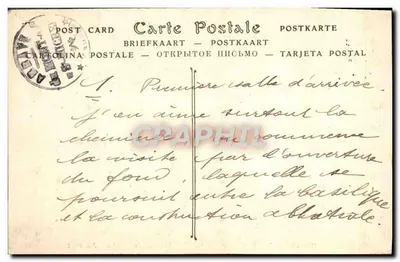 POST CARD Carte Postale POSTKARTE
BRIEFKAART — POSTKAART
CARTOLINA POSTALE — ОТКРЫТОЕ ПИСЬМО — TARJETA POSTAL
1. Première salle d'arrivée.
J'en aime surtout la
cheminée. on commence
la visite par l'ouverture
du fond, laquelle se
poursuit entre la basilique
et la construction abbatiale.